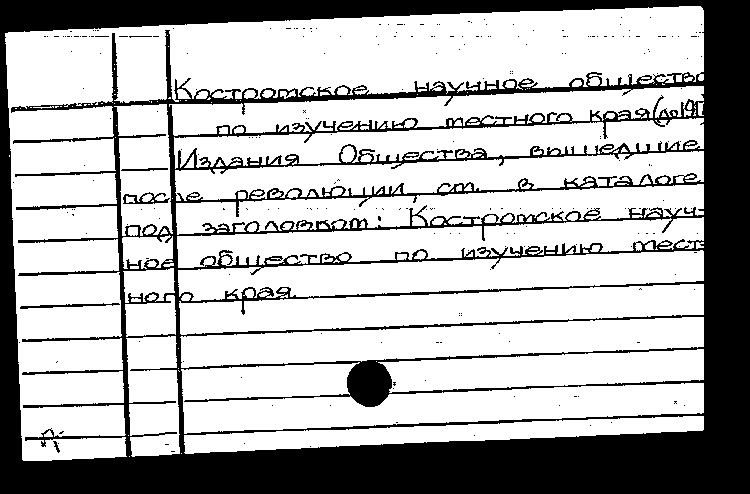 Костромское научное общество
по изучению местного края (до 1917
Издания Общества, вышедшие
после революции, см. в каталоге
под заголовком: Костромское науч-
ное общество по изучению мест-
ного края.